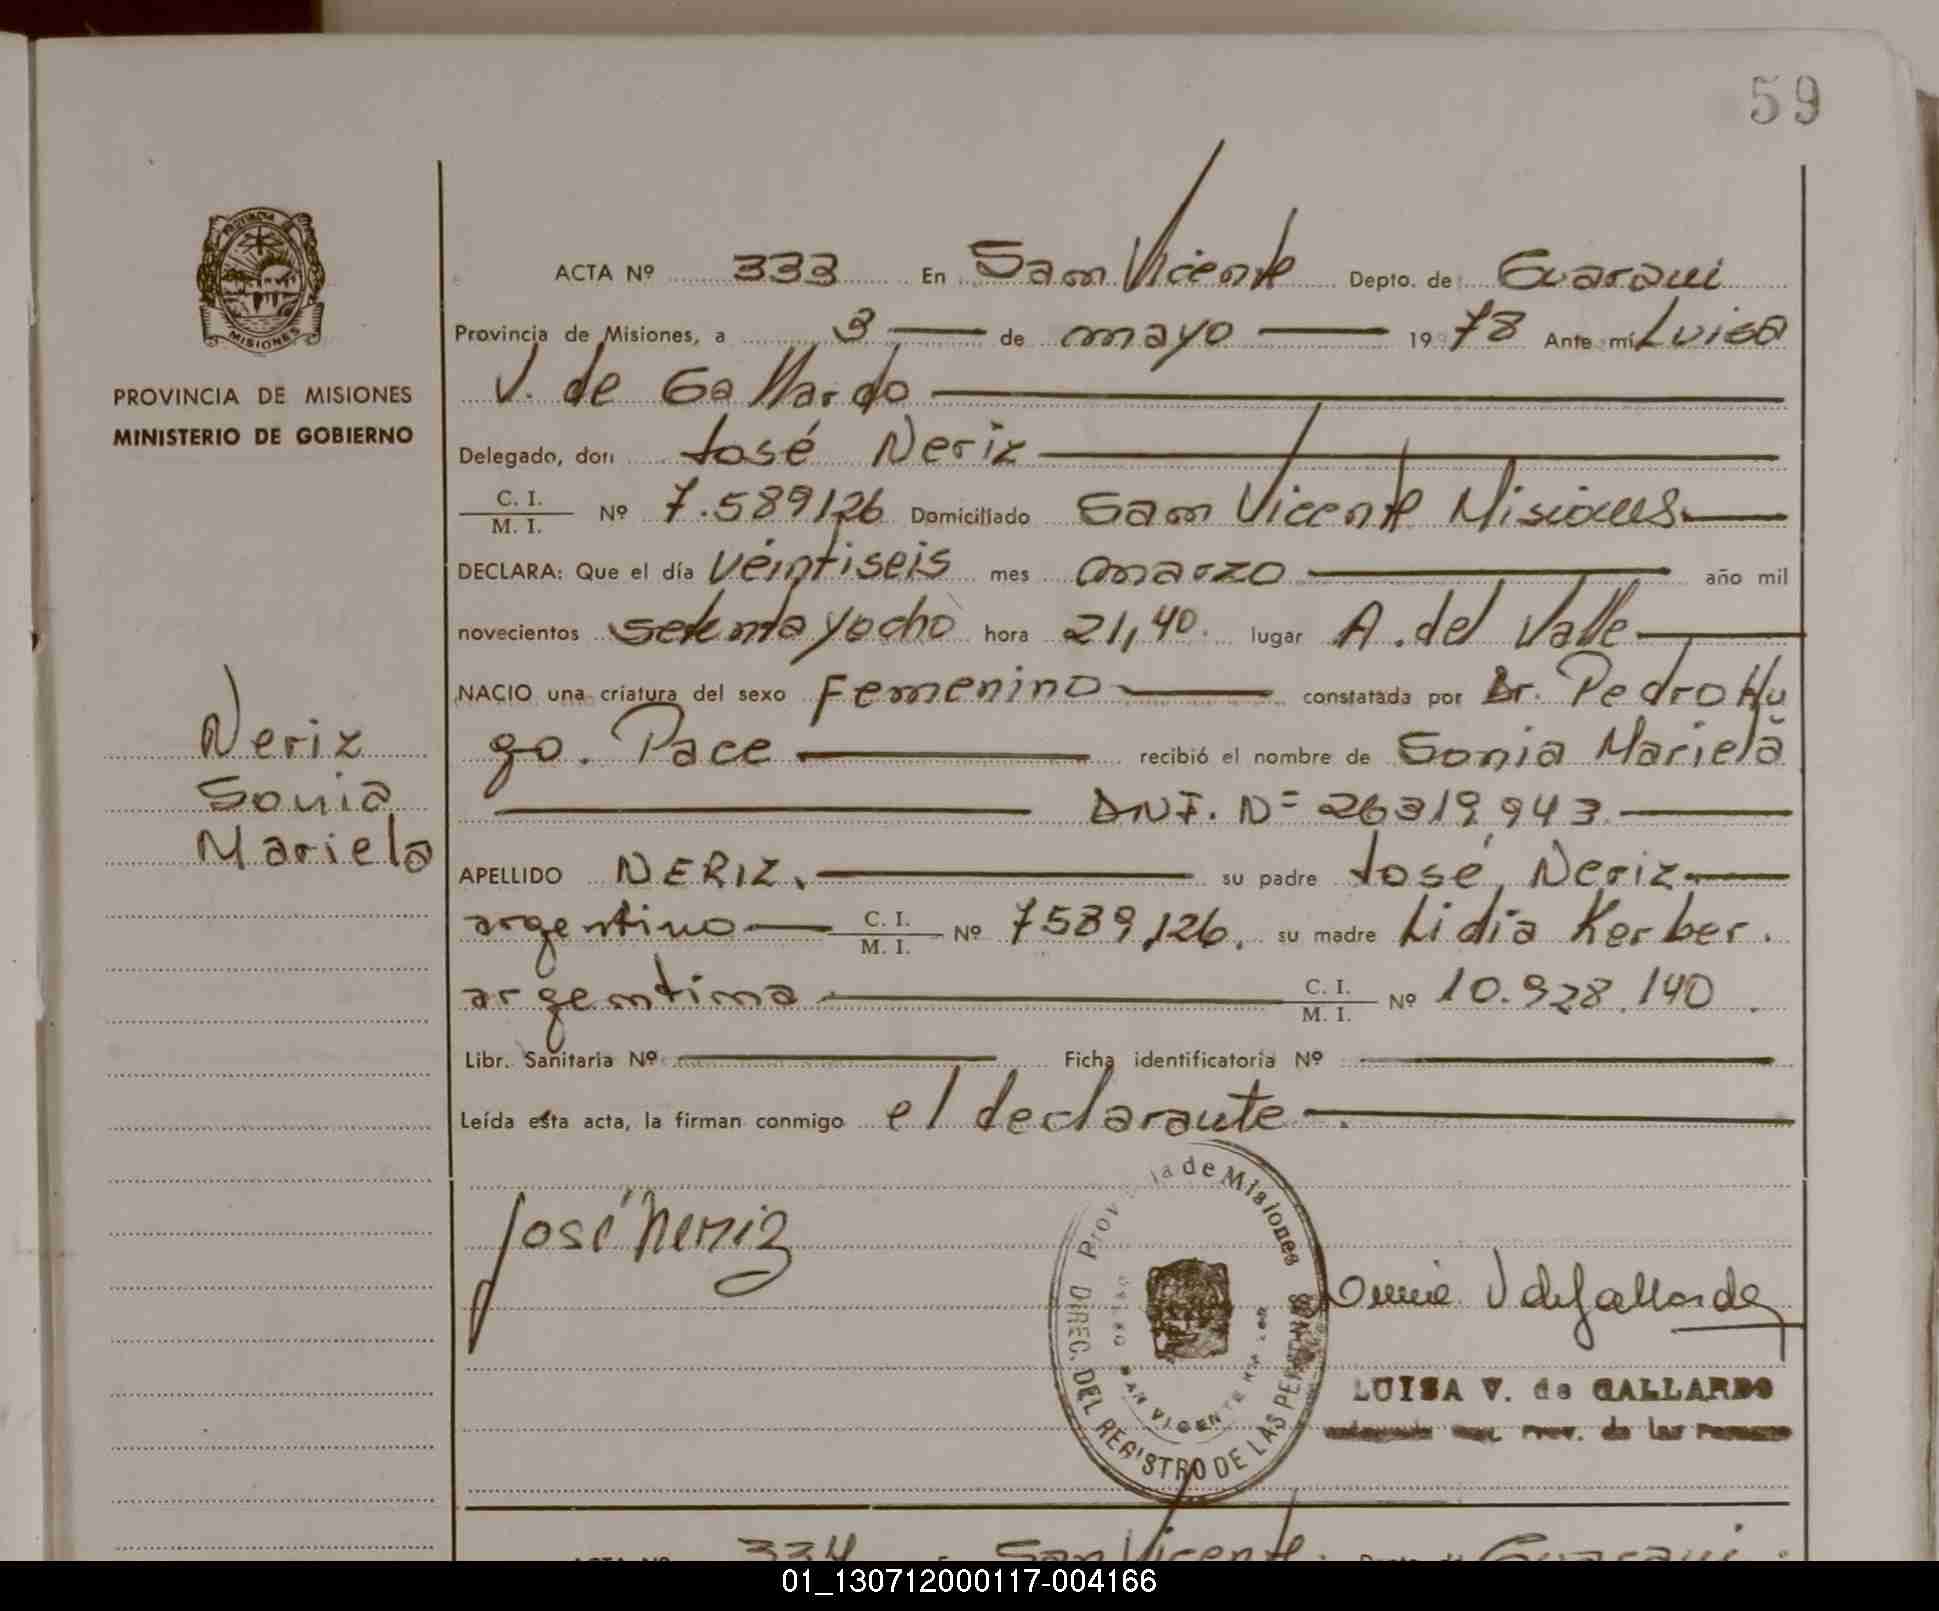 59
PROVINCIA
MISIONES
PROVINCIA DE MISIONES
MINISTERIO DE GOBIERNO
Neriz
Sonia
Mariela
ACTA Nº 333 En San Vicente Depto. de Guarani
Provincia de Misiones, a 3 de mayo 1978 Ante mi Luisa
V. de Gallardo
Delegado, don José Neriz
C. I. / M. I. Nº 7.589126 Domiciliado San Vicente Misiones
DECLARA: Que el día veintiseis mes marzo año mil
novecientos setenta y ocho hora 21,40. lugar A. del Valle
NACIO una criatura del sexo Femenino constatada por Dr. Pedro Hu
go. Pace recibió el nombre de Sonia Mariela
DNI. Nº 26319,943
APELLIDO NERIZ. su padre José Neriz
argentino C. I. / M. I. Nº 7589,126. su madre Lidia Kerber.
argentina C. I. / M. I. Nº 10.928.140
Libr. Sanitaria Nº Ficha identificatoria Nº
Leída esta acta, la firman conmigo el declarante
José Neriz
Provincia de Misiones
DIREC. DEL REGISTRO DE LAS PERSONAS
SAN VICENTE
V de Gallardo
LUISA V. de GALLARDO
Prov. de las Personas
ACTA Nº 334 En San Vicente Depto. de Guarani
01_130712000117-004166